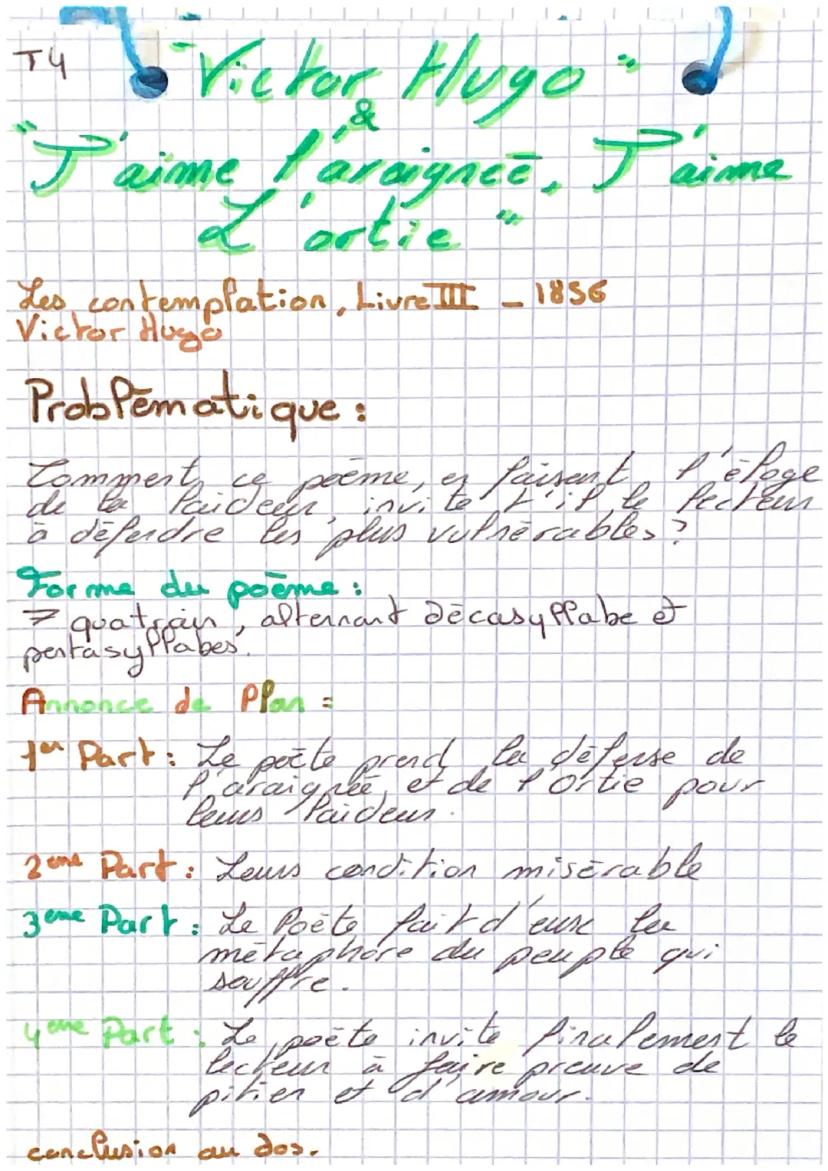 T4
"Victor Hugo"
&
"J'aime l'araignée, J'aime
L'ortie"
Les contemplation, Livre III - 1856
Victor Hugo
Problématique :
Comment ce poème, en faisant l'éloge
de la laideur, invite t'il le lecteur
à défendre les plus vulnérables ?
Forme du poème :
7 quatrain, alternant décasyllabe et
pentasyllabes.
Annonce de Plan :
1er Part : Le poète prend la défense de
l'araignée et de l'Ortie pour
leurs laideur.
2eme Part : Leurs condition misérable
3eme Part : Le Poète fait d'eux la
métaphore du peuple qui
souffre.
4eme Part : Le poète invite finalement le
lecteur à faire preuve de
pitier et d'amour.
conclusion au dos.